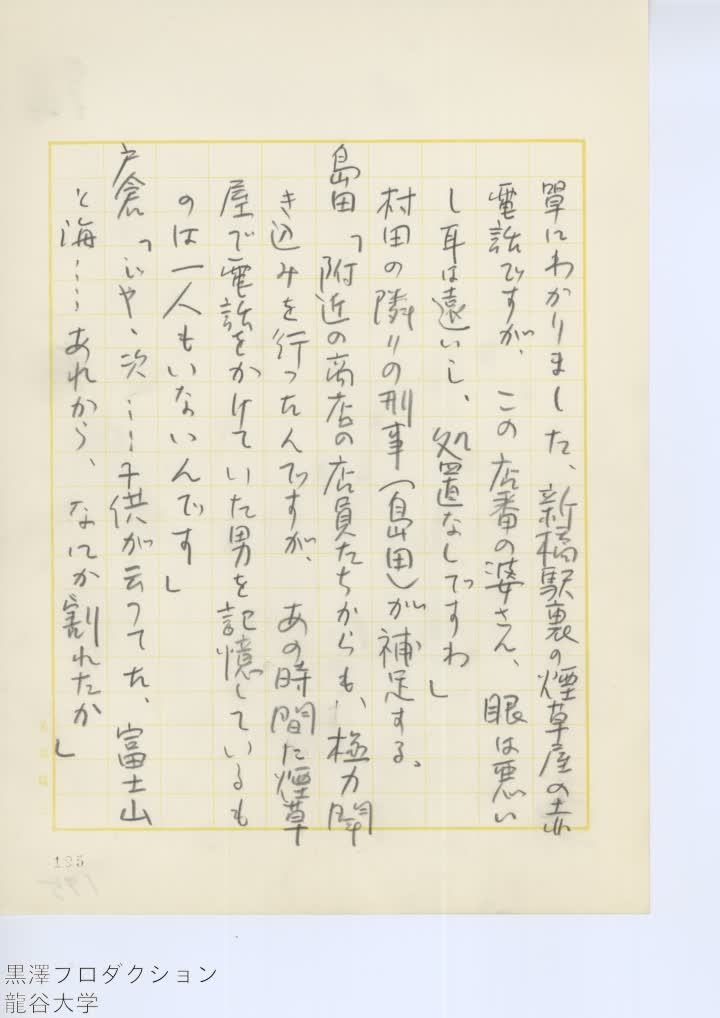 単にわかりました、新橋駅裏の煙草屋の赤
電話ですが、この店番の婆さん、眼は悪い
し耳は遠いし、処置なしですわ」
村田の隣りの刑事(島田)が補足する。
島田「附近の商店の店員たちからも、極力聞
き込みを行ったんですが、あの時間に煙草
屋で電話をかけていた男を記憶しているも
のは一人もいないんです」
戸倉「じゃ、次……子供が云ってた、富士山
と海……あれから、なにか割れたか」
195
黒澤プロダクション
龍谷大学